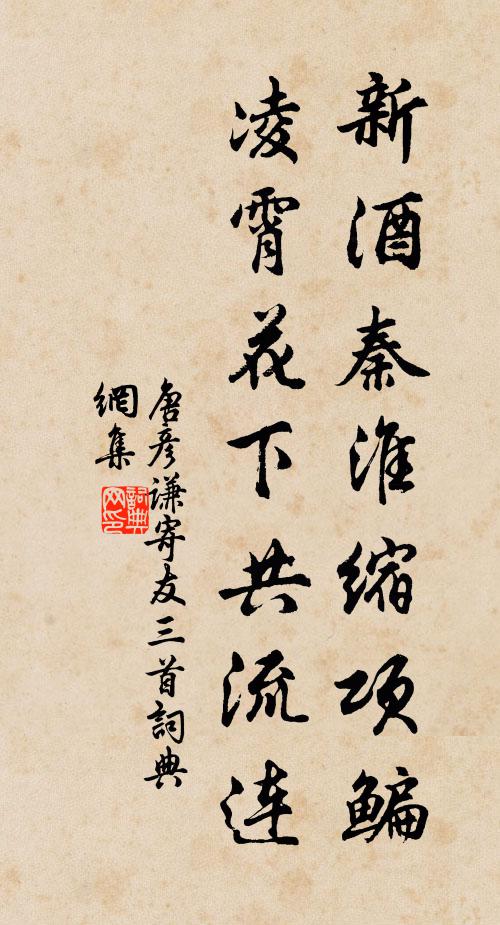 新酒秦淮缩项鳊
凌霄花下共流連
唐彦谦寄友三首詞典
網集
詞典
网印